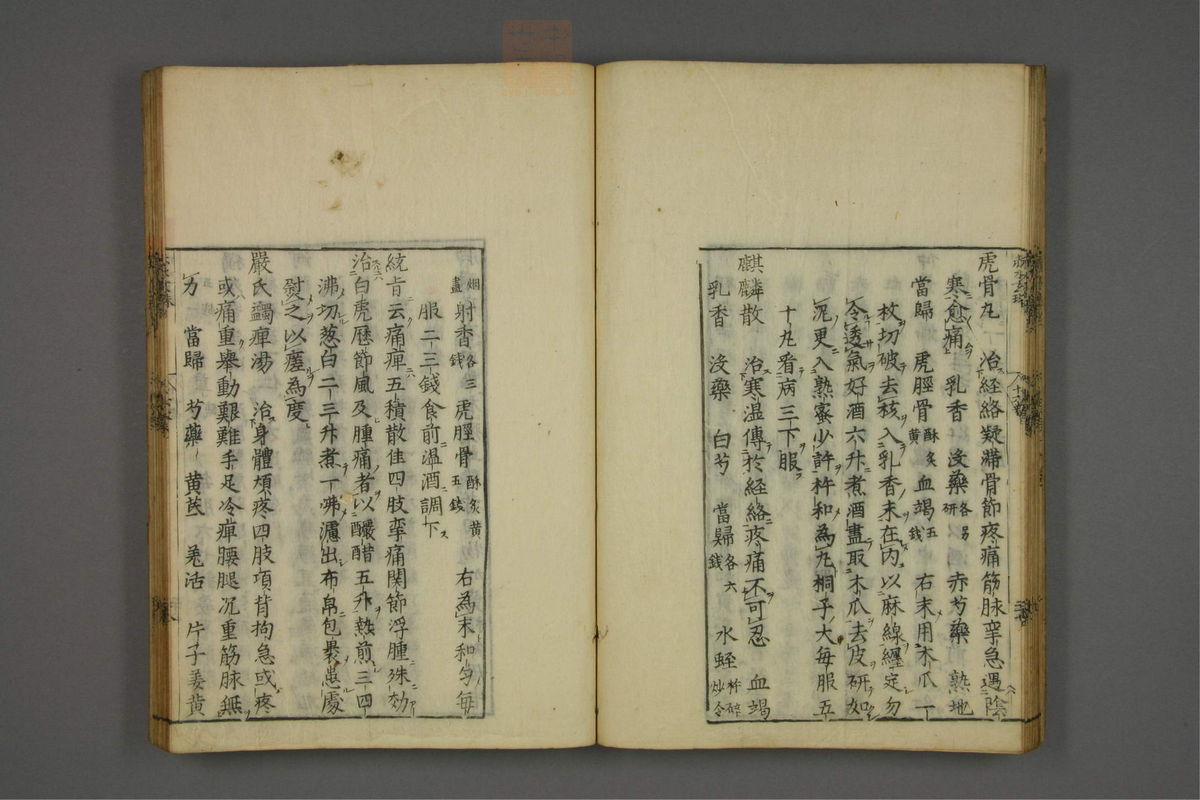 虎骨丸 治経絡凝滞骨節疼痛筋脉攣急遇陰
寒愈痛 乳香 没藥各另研 赤芍藥 熟地
當歸 虎脛骨酥炙黄 血竭五錢 右末用木瓜一
枚切破去核入乳香末在内以麻線纏定勿
令透氣好酒六升煮酒盡取木瓜去皮研如
泥更入熟蜜少許杵和為丸桐子大毎服五
十丸看病三下服
麒麟散 治寒温傳於経絡疼痛不可忍 血竭
乳香 没藥 白芍 當歸各六錢 水蛭杵碎炒令
烟盡 射香各三錢 虎脛骨酥炙黄五錢 右為末和勻毎
服二三錢食前温酒調下
統旨云痛痺五積散佳四肢攣痛関節浮腫殊効
治白虎歴節風及腫痛者以釅醋五升熱煎三四
沸切葱白二三升煮一沸漉出布帛包裹患處
熨之以瘥為度
嚴氏蠲痺湯 治身體煩疼四肢項背拘急或疼
或痛重舉動艱難手足冷痺腰腿沉重筋脉無
力 當歸 芍藥 黄芪 羌活 片子姜黄